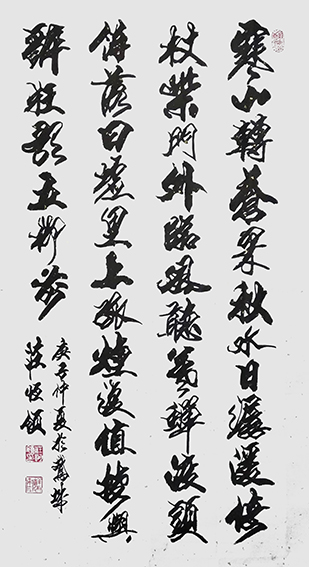 寒山轉蒼翠秋水日潺湲倚
杖柴門外臨風聽暮蟬渡頭
餘落日墟里上孤煙復值接輿
醉狂歌五柳前
庚子仲夏於